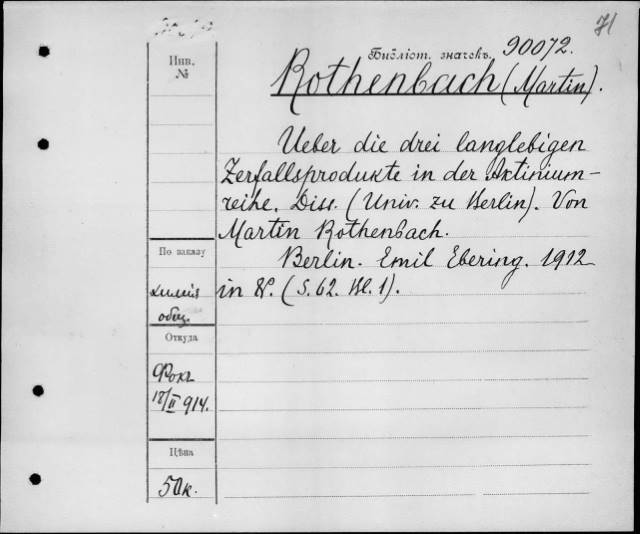 71
Библіот. значекъ. 90072.
Инв.
№
Rothenbach (Martin).
Ueber die drei langlebigen
Zerfallsprodukte in der Aktinium-
reihe. Diss. (Univ. zu Berlin). Von
Martin Rothenbach.
Berlin. Emil Ebering. 1912
in 8º. (S. 62. Bl. 1).
По заказу
химія
общ.
Откуда
Фокъ
18/II 914.
Цѣна
50к.